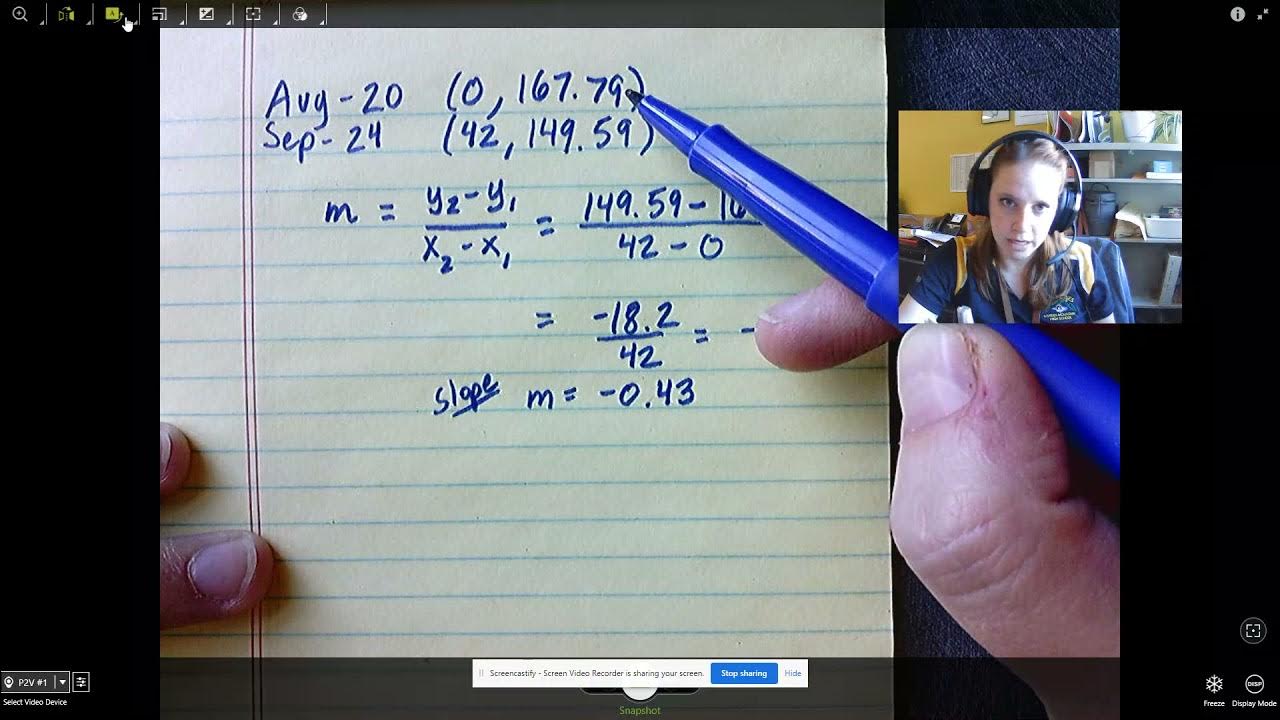 Aug-20 (0, 167.79)
Sep-24 (42, 149.59)
m = y2 - y1 / x2 - x1 = 149.59 - / 42 - 0
= -18.2 / 42 = -
slope m = -0.43
V2V #1
Select Video Device
Screencastify - Screen Video Recorder is sharing your screen. Stop sharing Hide
Snapshot
Freeze Display Mode
DISP
HIGH SCHOOL